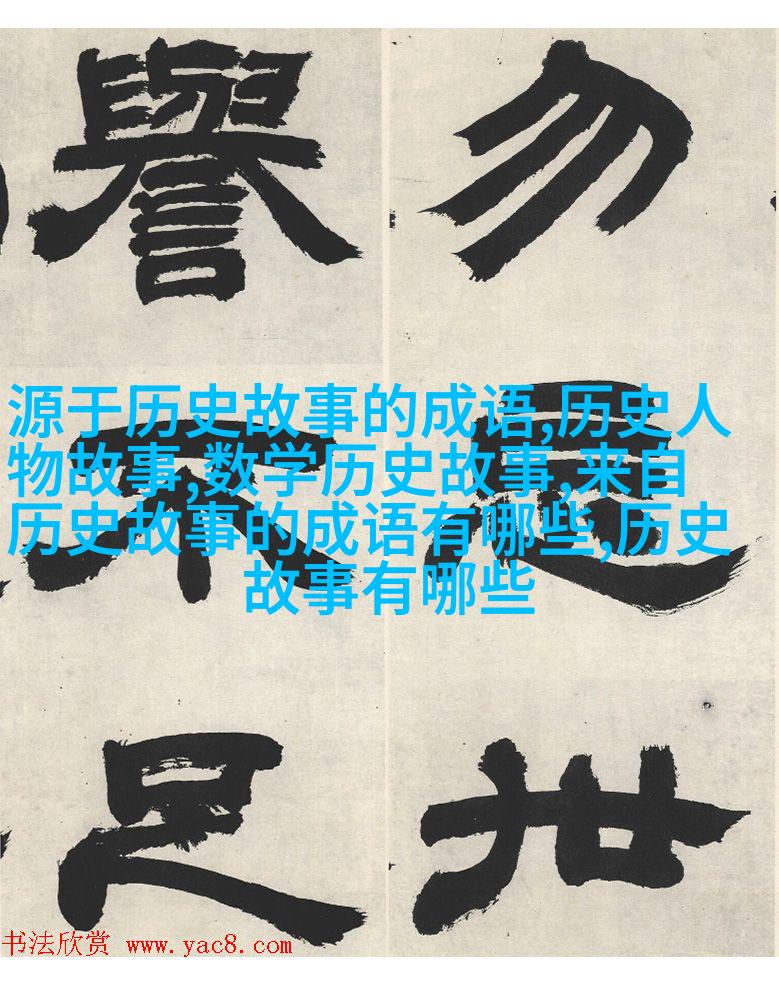 勿忘世
譽不足
源于历史故事的成语,历史人
物故事,数学历史故事,来自
历史故事的成语有哪些,历史
故事有哪些
书法欣赏 www.yac8.com